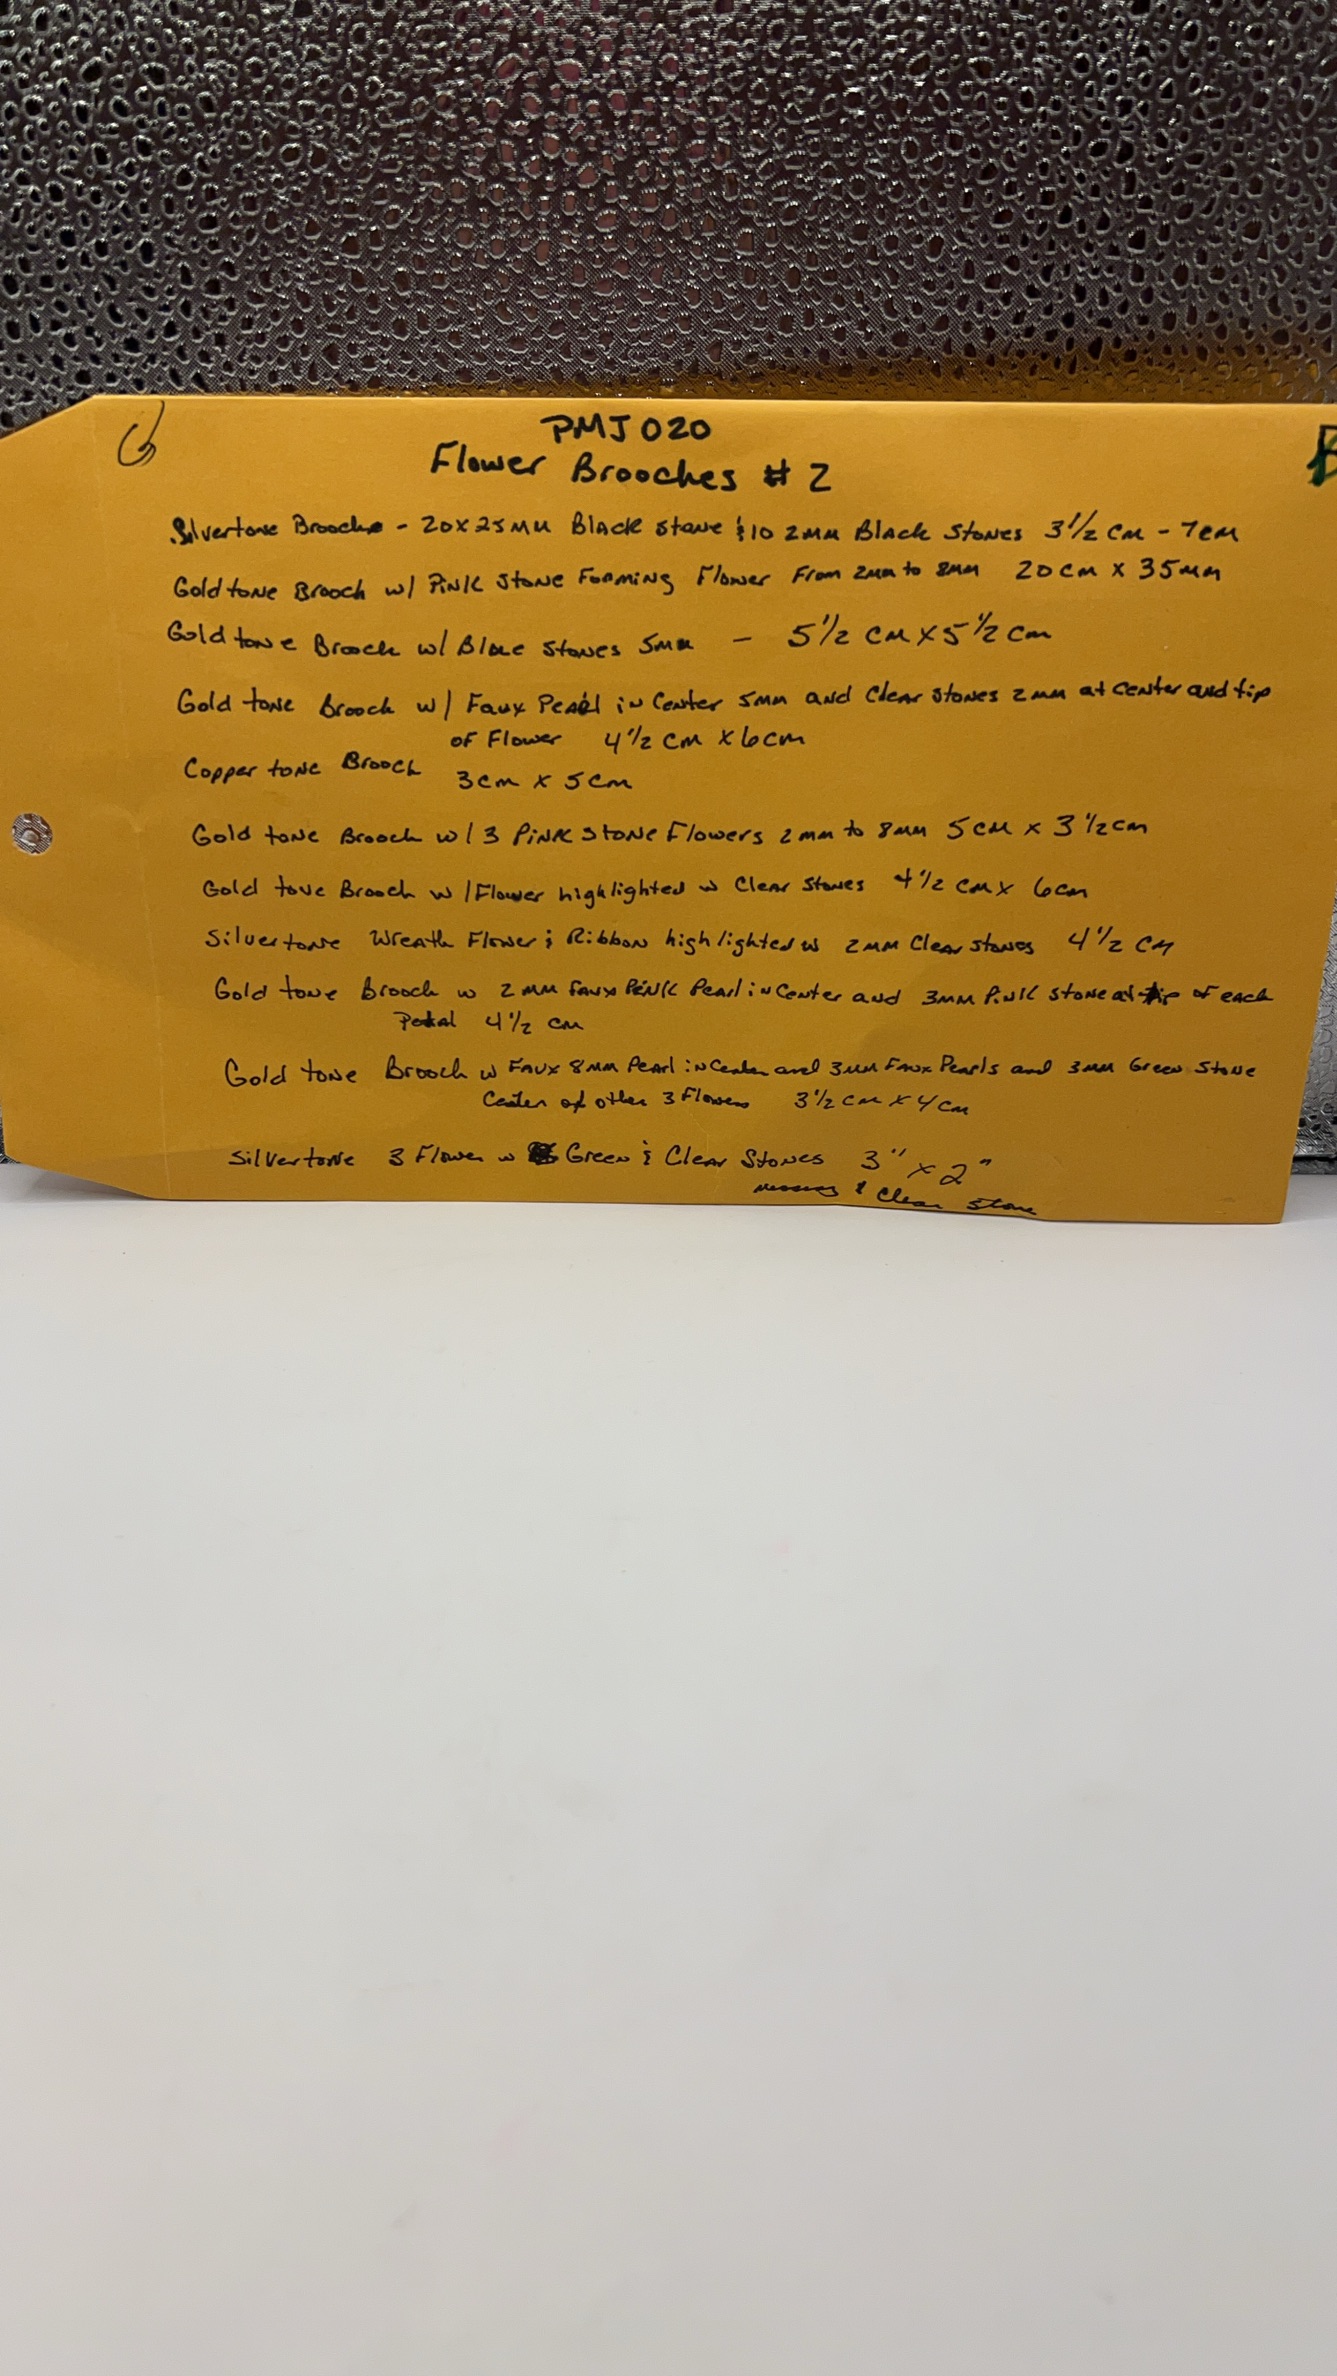 PMJ020
Flower Brooches # 2
Silvertone Brooch - 20x25MM Black Stone & 10 2MM Black Stones 3 1/2 cm - 7cm
Goldtone Brooch w/ Pink Stone Forming Flower From 2mm to 8mm 20cm x 35mm
Gold tone Brooch w/ Blue Stones 5mm - 5 1/2 cm x 5 1/2 cm
Gold tone Brooch w/ Faux Pearl in Center 5mm and Clear Stones 2mm at center and tip
of Flower 4 1/2 cm x 6cm
Copper tone Brooch 3cm x 5cm
Gold tone Brooch w/ 3 Pink Stone Flowers 2mm to 8mm 5cm x 3 1/2cm
Gold tone Brooch w/ Flower highlighted w Clear Stones 4 1/2 cm x 6cm
Silvertone Wreath Flower & Ribbon highlighted w 2MM Clear stones 4 1/2 cm
Gold tone Brooch w 2mm Faux Pink Pearl in Center and 3MM Pink stone at tip of each
Petal 4 1/2 cm
Gold tone Brooch w Faux 8MM Pearl in Center and 3MM Faux Pearls and 3MM Green Stone
Center of other 3 Flowers 3 1/2 cm x 4cm
Silvertone 3 Flower w Green & Clear Stones 3" x 2"
missing 1 Clear Stone